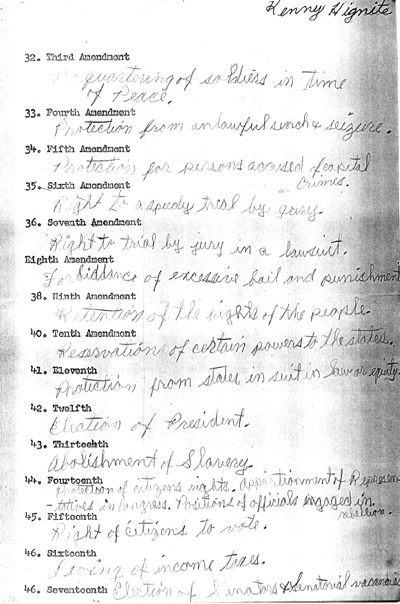 Kenny Hignite
32. Third Amendment
No quartering of soldiers in time
of Peace.
33. Fourth Amendment
Protection from unlawful serch & seizure.
34. Fifth Amendment
Protection for persons accused of capital
crimes.
35. Sixth Amendment
Right to a speedy trial by jury.
36. Seventh Amendment
Right to trial by jury in a lawsuit.
Eighth Amendment
Forbiddance of excessive bail and punishment
38. Ninth Amendment
Retention of the rights of the people.
40. Tenth Amendment
Reservations of certain powers to the states.
41. Eleventh
Protection from states in suit in law or equity.
42. Twelfth
Election of President.
43. Thirteenth
Abolishment of Slavery.
44. Fourteenth
Protection of citizens rights. Apportionment of Represen
-tatives in Congress. Positions of officials engaged in
rebellion.
45. Fifteenth
Right of citizens to vote.
46. Sixteenth
of income taxes.
46. Seventeenth Election of Senators & Senatorial vacancies